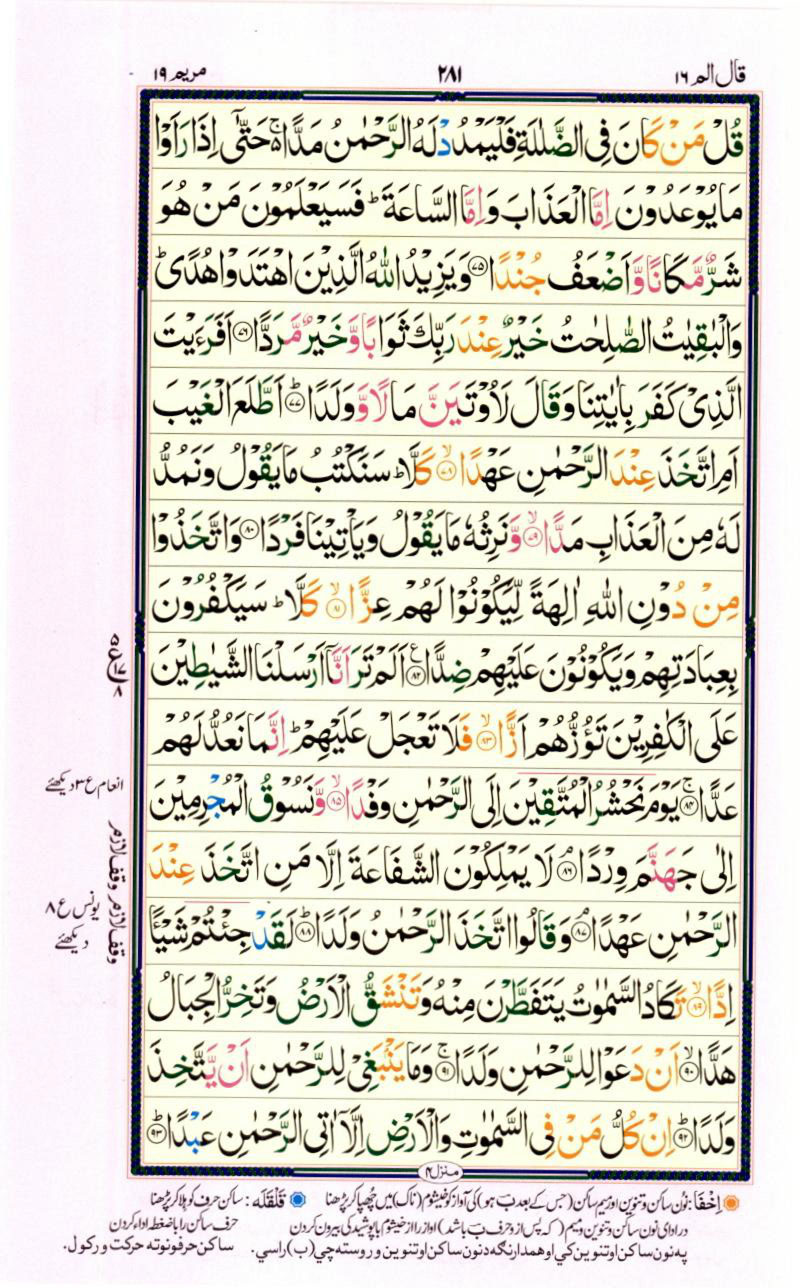 قال الم ١٦
٢٨١
مريم ١٩
قُلْ مَنْ كَانَ فِى الضَّلٰلَةِ فَلْيَمْدُدْ لَهُ الرَّحْمٰنُ مَدًّا ۚ حَتّٰٓى اِذَا رَاَوْا
مَا يُوْعَدُوْنَ اِمَّا الْعَذَابَ وَاِمَّا السَّاعَةَ ؕ فَسَيَعْلَمُوْنَ مَنْ هُوَ
شَرٌّ مَّكَانًا وَّاَضْعَفُ جُنْدًا ﴿٧٥﴾ وَيَزِيْدُ اللّٰهُ الَّذِيْنَ اهْتَدَوْا هُدًى ؕ
وَالْبٰقِيٰتُ الصّٰلِحٰتُ خَيْرٌ عِنْدَ رَبِّكَ ثَوَابًا وَّخَيْرٌ مَّرَدًّا ﴿٧٦﴾ اَفَرَءَيْتَ
الَّذِىْ كَفَرَ بِاٰيٰتِنَا وَقَالَ لَاُوْتَيَنَّ مَالًا وَّوَلَدًا ؕ﴿٧٧﴾ اَطَّلَعَ الْغَيْبَ
اَمِ اتَّخَذَ عِنْدَ الرَّحْمٰنِ عَهْدًا ۙ﴿٧٨﴾ كَلَّا ؕ سَنَكْتُبُ مَا يَقُوْلُ وَنَمُدُّ
لَهٗ مِنَ الْعَذَابِ مَدًّا ۙ﴿٧٩﴾ وَّنَرِثُهٗ مَا يَقُوْلُ وَيَاْتِيْنَا فَرْدًا ﴿٨٠﴾ وَاتَّخَذُوْا
مِنْ دُوْنِ اللّٰهِ اٰلِهَةً لِّيَكُوْنُوْا لَهُمْ عِزًّا ۙ﴿٨١﴾ كَلَّا ؕ سَيَكْفُرُوْنَ
بِعِبَادَتِهِمْ وَيَكُوْنُوْنَ عَلَيْهِمْ ضِدًّا ﴿٨٢﴾ اَلَمْ تَرَ اَنَّاۤ اَرْسَلْنَا الشَّيٰطِيْنَ
عَلَى الْكٰفِرِيْنَ تَؤُزُّهُمْ اَزًّا ۙ﴿٨٣﴾ فَلَا تَعْجَلْ عَلَيْهِمْ ؕ اِنَّمَا نَعُدُّ لَهُمْ
عَدًّا ۚ﴿٨٤﴾ يَوْمَ نَحْشُرُ الْمُتَّقِيْنَ اِلَى الرَّحْمٰنِ وَفْدًا ۙ﴿٨٥﴾ وَّنَسُوْقُ الْمُجْرِمِيْنَ
اِلٰى جَهَنَّمَ وِرْدًا ۘ﴿٨٦﴾ لَا يَمْلِكُوْنَ الشَّفَاعَةَ اِلَّا مَنِ اتَّخَذَ عِنْدَ
الرَّحْمٰنِ عَهْدًا ۘ﴿٨٧﴾ وَقَالُوا اتَّخَذَ الرَّحْمٰنُ وَلَدًا ؕ﴿٨٨﴾ لَقَدْ جِئْتُمْ شَيْـًٔا
اِدًّا ۙ﴿٨٩﴾ تَكَادُ السَّمٰوٰتُ يَتَفَطَّرْنَ مِنْهُ وَتَنْشَقُّ الْاَرْضُ وَتَخِرُّ الْجِبَالُ
هَدًّا ۙ﴿٩٠﴾ اَنْ دَعَوْا لِلرَّحْمٰنِ وَلَدًا ۚ﴿٩١﴾ وَمَا يَنْۢبَغِىْ لِلرَّحْمٰنِ اَنْ يَّتَّخِذَ
وَلَدًا ؕ﴿٩٢﴾ اِنْ كُلُّ مَنْ فِى السَّمٰوٰتِ وَالْاَرْضِ اِلَّاۤ اٰتِى الرَّحْمٰنِ عَبْدًا ؕ﴿٩٣﴾
انعام ع ٣ دیکھئے
وقف لازم
وقف لازم
یونس ع ٨
دیکھئے
منزل ٤
اِخْفَا: نون ساکن و تنوین اور میم ساکن (جس کے بعد بَ ہو) کی آواز کو خیشوم (ناک) میں چھپا کر پڑھنا
قَلْقَلَه: ساکن حرف کو ہلا کر پڑھنا
در ادای نون ساکن و تنوین و میم (که پس از و حرف ب باشد) آواز را از خیشوم با پوشیدگی بیرون کردن
حرف ساکن را با ضغط اداء کردن
په نون ساکن او تنوین کي او همدارنګه د نون ساکن او تنوین وروسته چي (ب) راسي.
ساکن حرفونو ته حرکت ورکول.